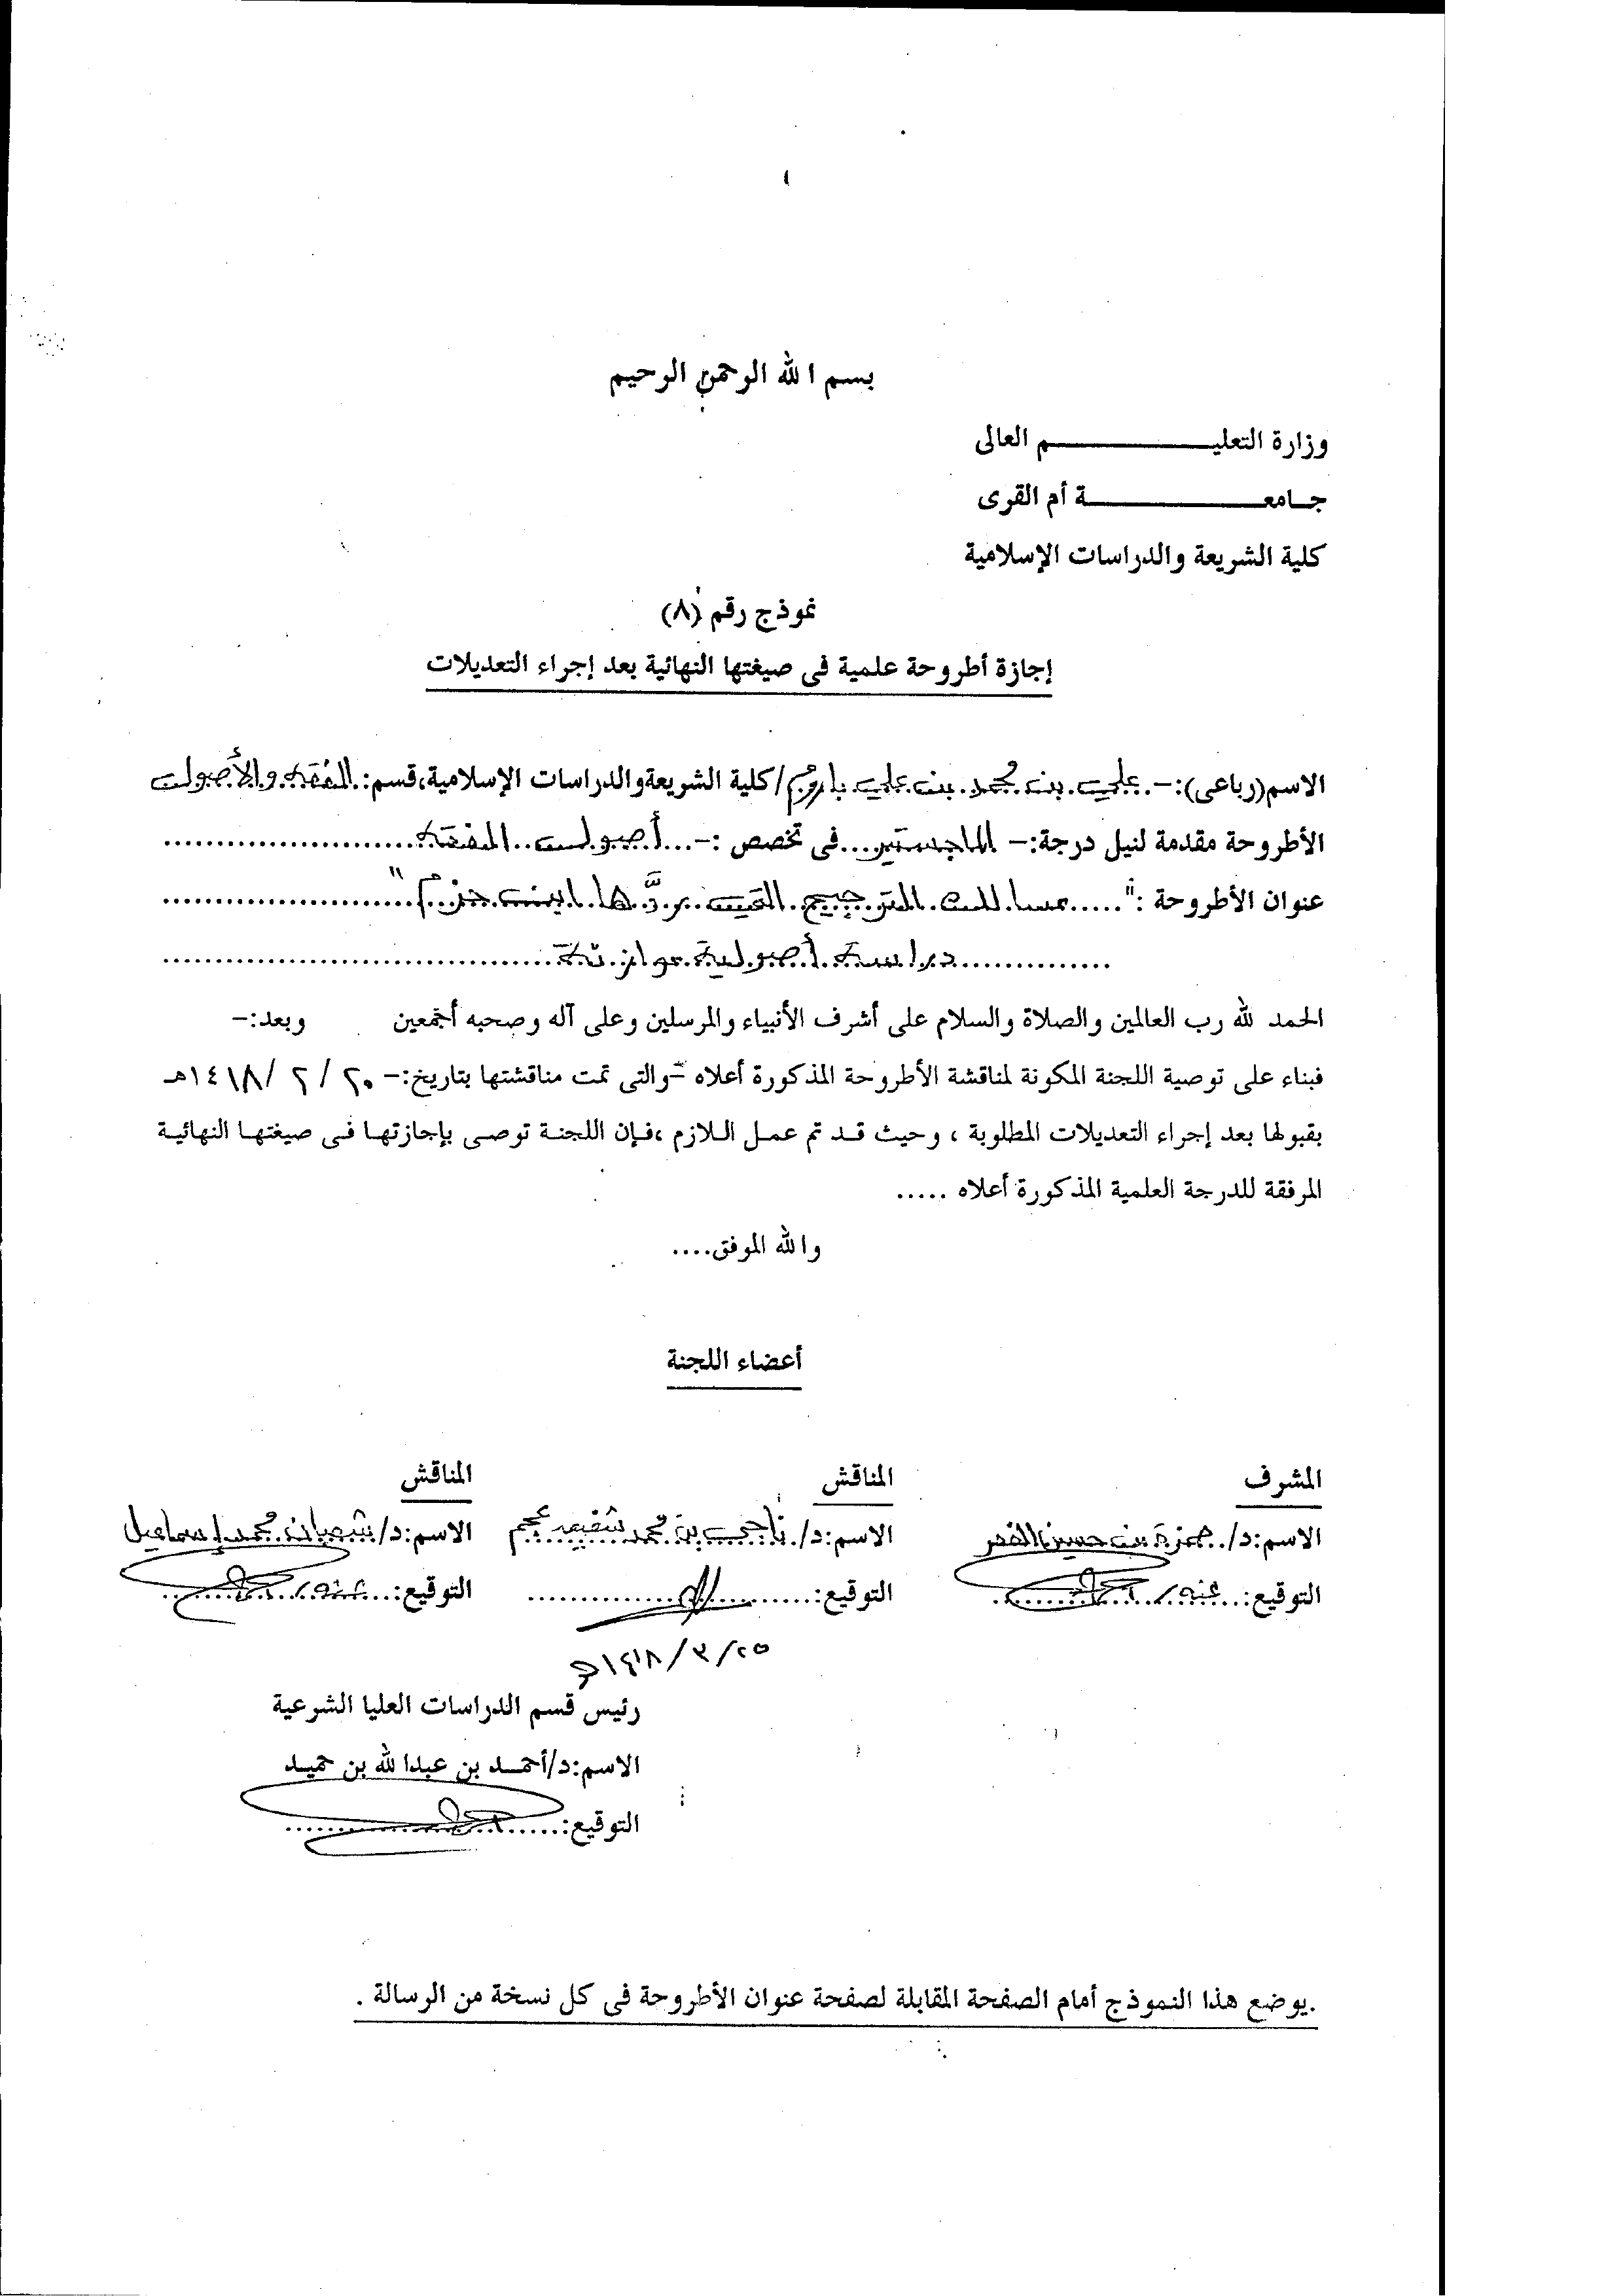 بسم الله الرحمن الرحيم
وزارة التعليم العالى
جامعة أم القرى
كلية الشريعة والدراسات الإسلامية
نموذج رقم (٨)
إجازة أطروحة علمية فى صيغتها النهائية بعد إجراء التعديلات
الاسم(رباعى):- علي بن محمد بن علي باروم/كلية الشريعة والدراسات الإسلامية،قسم: الفقه والأصول
الأطروحة مقدمة لنيل درجة:- الماجستير...فى تخصص :-...أصول الفقه
عنوان الأطروحة :"..... مسالك الترجيح التي ردَّها ابن حزم"
دراسة أصولية موازنة
الحمد لله رب العالمين والصلاة والسلام على أشرف الأنبياء والمرسلين وعلى آله وصحبه أجمعين وبعد:-
فبناء على توصية اللجنة المكونة لمناقشة الأطروحة المذكورة أعلاه -والتى تمت مناقشتها بتاريخ:- ٢٠ / ٢ /١٤١٨هـ
بقبولها بعد إجراء التعديلات المطلوبة ، وحيث قد تم عمل اللازم ،فإن اللجنة توصى بإجازتها فى صيغتها النهائية
المرفقة للدرجة العلمية المذكورة أعلاه .....
والله الموفق....
أعضاء اللجنة
المشرف المناقش المناقش
الاسم:د/..حمزة بن حسين الفعر الاسم:د/.ناجي بن محمد شفيع عجم الاسم:د/شعبان محمد إسماعيل
التوقيع:..عنه/ التوقيع: التوقيع:...عنه/
٢٥/٣/١٤١٨هـ
رئيس قسم الدراسات العليا الشرعية
الاسم:د/أحمد بن عبدالله بن حميد
التوقيع:
.يوضع هذا النموذج أمام الصفحة المقابلة لصفحة عنوان الأطروحة فى كل نسخة من الرسالة .